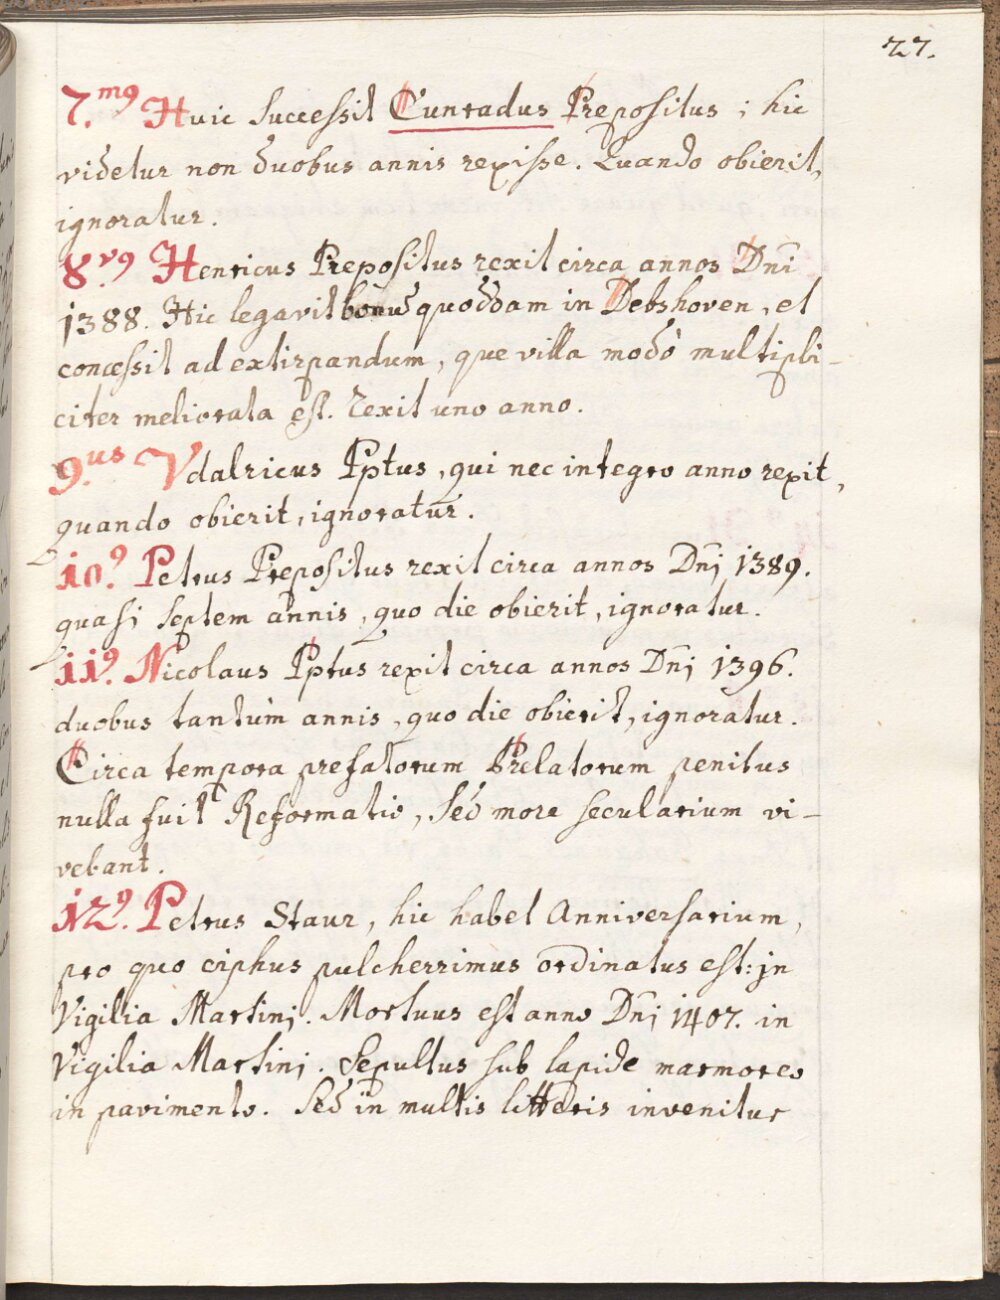 27.
7.mꝰ Huic Successit Cunradus Prepositus; hic
videtur non duobus annis rexisse. Quando obierit,
ignoratur.
8.vꝰ Henricus Prepositus rexit circa annos Dñi
1388. Hic legavit bonũ quoddam in Debshoven, et
concessit ad extirpandum, que villa modò multipli-
citer meliorata est. Rexit uno anno.
9.us Vdalricus Pptus, qui nec integro anno rexit,
quando obierit, ignoratur.
10.ꝰ Petrus Prepositus rexit circa annos Dñj 1389.
quasi septem annis, quo die obierit, ignoratur.
11ꝰ. Nicolaus Pptus rexit circa annos Dñj 1396.
duobus tantùm annis, quo die obierit, ignoratur.
Circa tempora prefatorum Prelatorum penitus
nulla fuit Reformatio, Sed more secularium vi-
vebant.
12ꝰ. Petrus Staur, hic habet Anniversarium,
pro quo ciphus pulcherrimus ordinatus est: jn
Vigilia Martinj. Mortuus est anno Dñj 1407. in
Vigilia Martinj. Sepultus sub lapide marmoreo
in pavimento. Sed in multis litteris invenitur